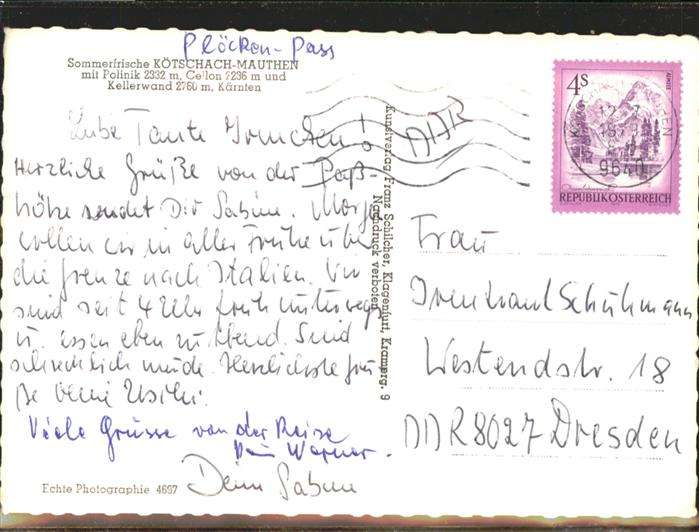 Plöcken-Pass
Sommerfrische KÖTSCHACH-MAUTHEN
mit Polinik 2332 m, Cellon 2236 m und
Kellerwand 2760 m, Kärnten
Liebe Tante Irmchen!
Herzliche Grüße von der Paß-
höhe sendet Dir Sabine. Morgen
wollen wir in aller Frühe über
die Grenze nach Italien. Wir
sind seit 4 Uhr früh unterwegs
u. essen eben zu Abend. Sind
schrecklich müde. Herzlichste Grü-
ße Deine
Viele Grüsse von der Reise
Dein Werner.
Deine Sabine
Echte Photographie 4697
Kunstverlag Franz Schilcher, Klagenfurt, Kramerg. 9
Nachdruck verboten
DDR
4S
REPUBLIK ÖSTERREICH
9640
Frau
Irmtraut Schuhmann
Westendstr. 18
DDR 8027 Dresden